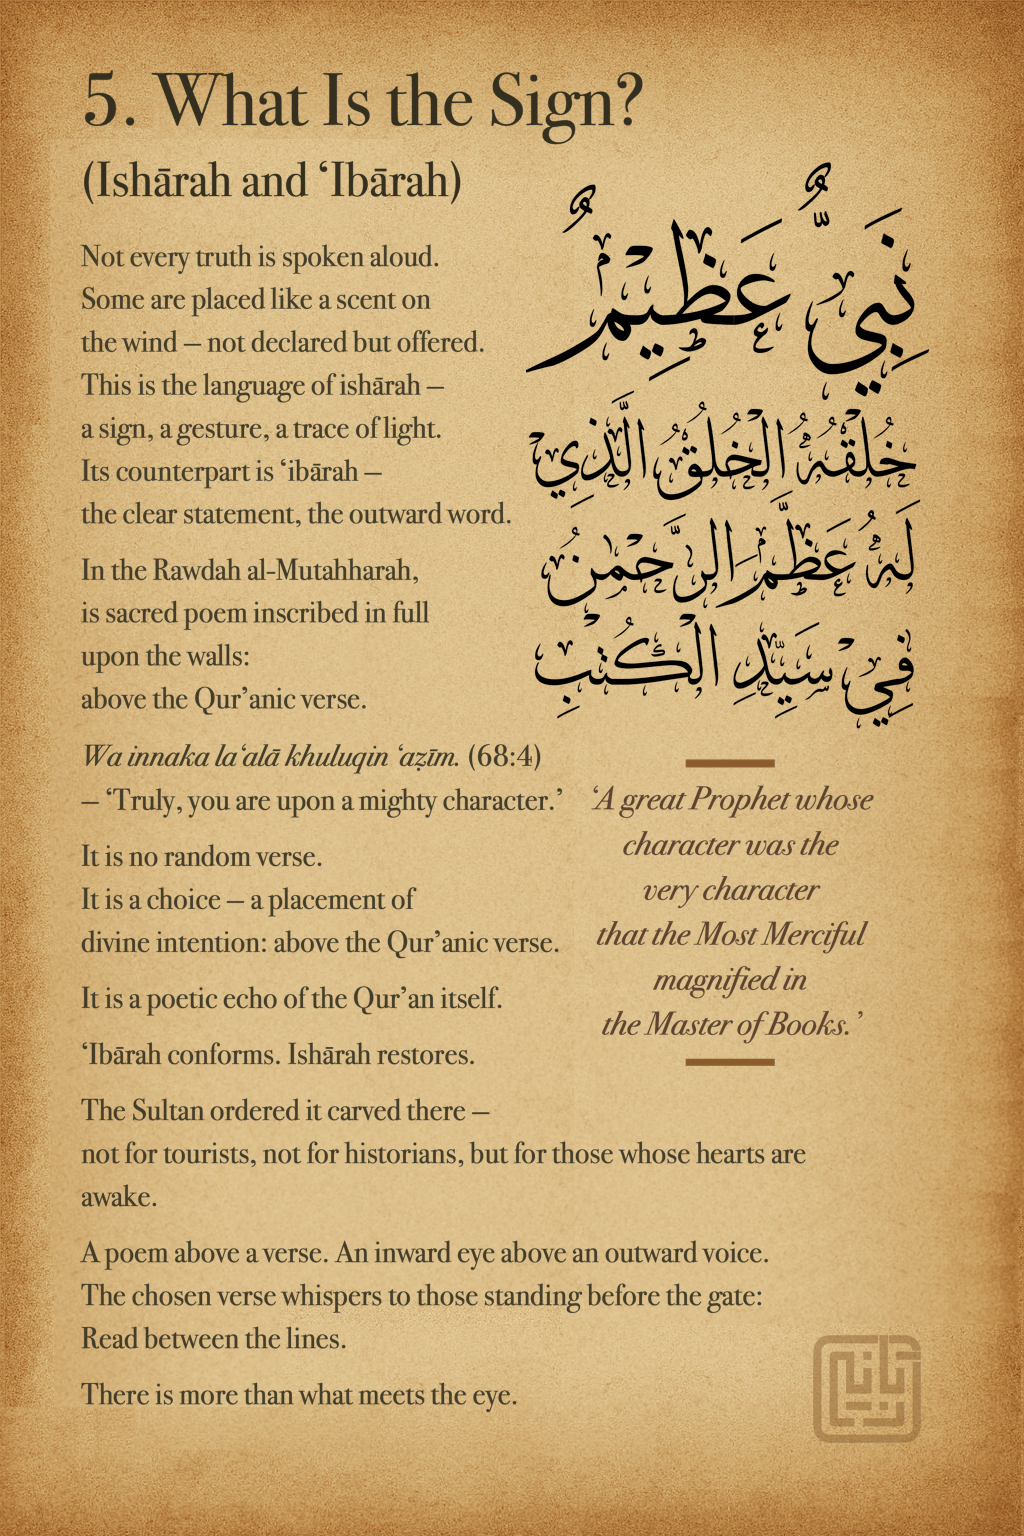 5. What Is the Sign?
(Ishārah and ‘Ibārah)
Not every truth is spoken aloud.
Some are placed like a scent on
the wind – not declared but offered.
This is the language of ishārah –
a sign, a gesture, a trace of light.
Its counterpart is ‘ibārah –
the clear statement, the outward word.
In the Rawdah al-Mutahharah,
is sacred poem inscribed in full
upon the walls:
above the Qur’anic verse.
Wa innaka la‘alā khuluqin ‘aẓīm. (68:4)
– ‘Truly, you are upon a mighty character.’
It is no random verse.
It is a choice – a placement of
divine intention: above the Qur’anic verse.
It is a poetic echo of the Qur’an itself.
‘Ibārah conforms. Ishārah restores.
The Sultan ordered it carved there –
not for tourists, not for historians, but for those whose hearts are
awake.
A poem above a verse. An inward eye above an outward voice.
The chosen verse whispers to those standing before the gate:
Read between the lines.
There is more than what meets the eye.
نَبِيٌّ عَظِيمٌ
خُلْقُهُ الْخُلُقُ الَّذِي
لَهُ عَظَّمَ الرَّحْمٰنُ
فِي سَيِّدِ الْكُتْبِ
‘A great Prophet whose
character was the
very character
that the Most Merciful
magnified in
the Master of Books.’